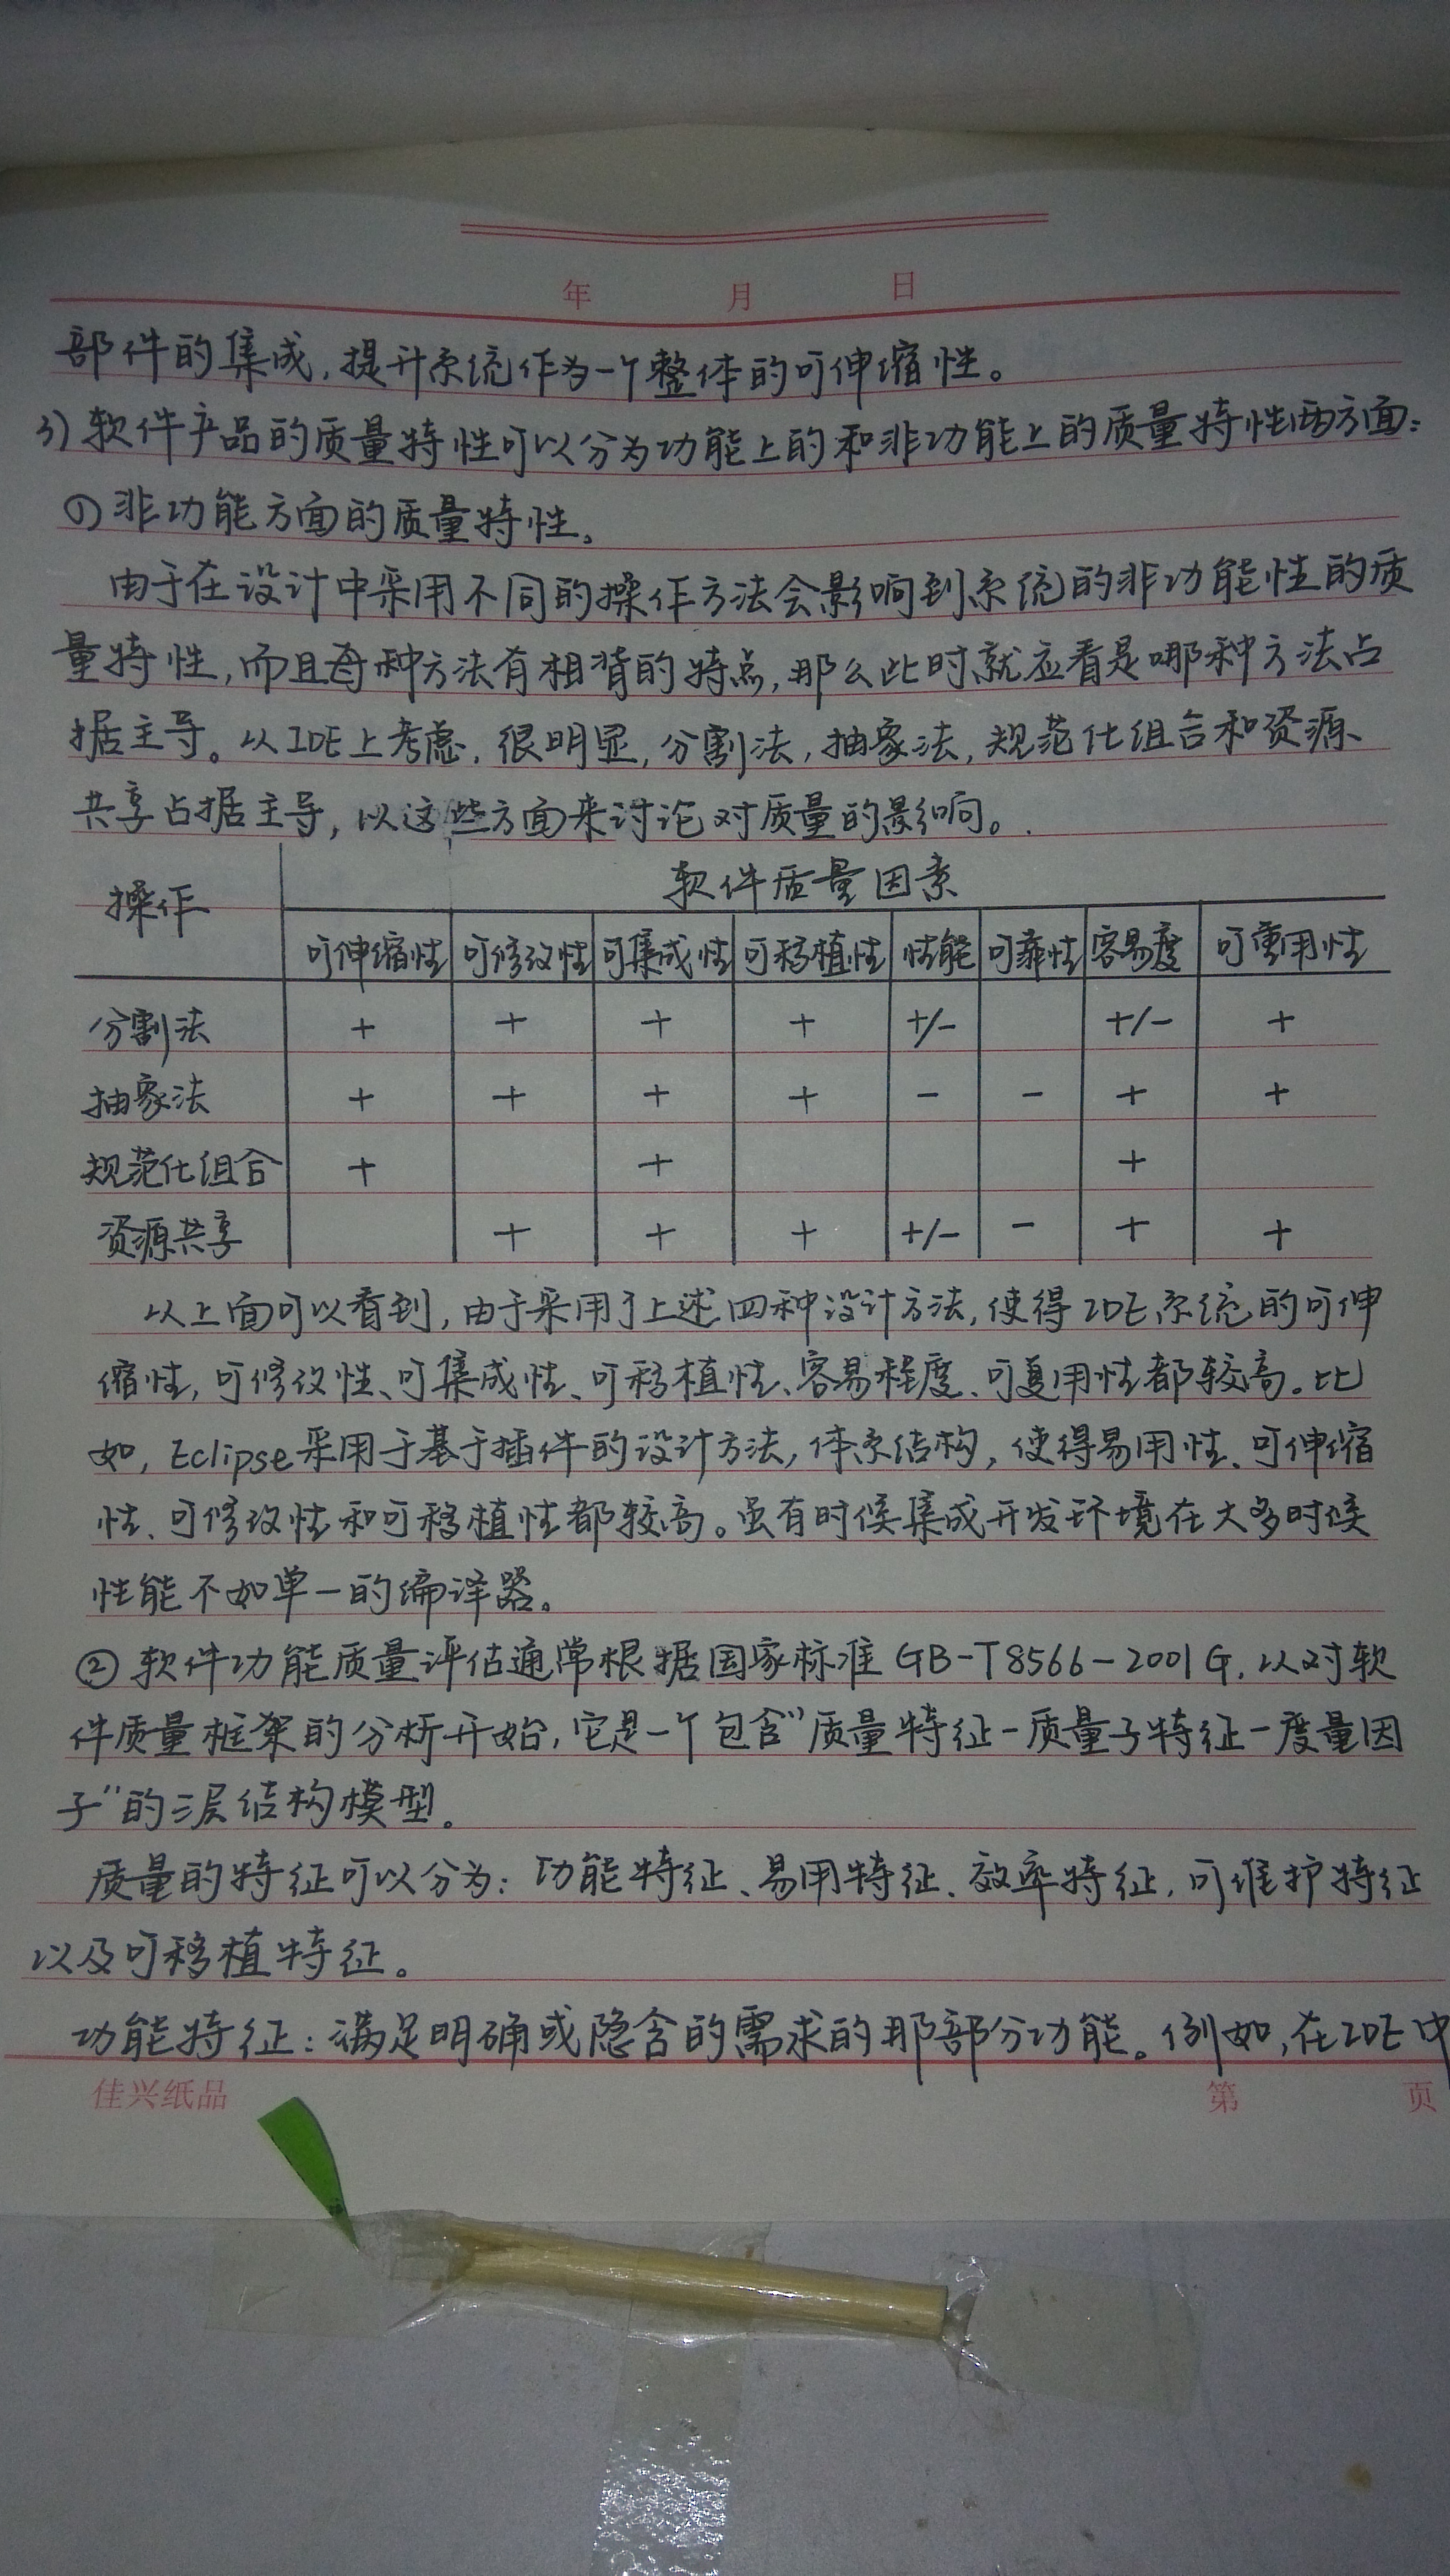 年 月 日
部件的集成,提升系统作为一个整体的可伸缩性。
3)软件产品的质量特性可以分为功能上的和非功能上的质量特性两方面:
①非功能方面的质量特性。
由于在设计中采用不同的操作方法会影响到系统的非功能性的质
量特性,而且每种方法有相背的特点,那么此时就应看是哪种方法占
据主导。从IDE上考虑,很明显,分割法,抽象法,规范化组合和资源
共享占据主导,以这些方面来讨论对质量的影响。
操作 软件质量因素
可伸缩性 可修改性 可集成性 可移植性 性能 可靠性 容易度 可重用性
分割法 + + + + +/- +/- +
抽象法 + + + + - - + +
规范化组合 + + +
资源共享 + + + +/- - + +
从上面可以看到,由于采用了上述四种设计方法,使得IDE系统的可伸
缩性,可修改性、可集成性、可移植性、容易程度、可复用性都较高。比
如,Eclipse采用于基于插件的设计方法,体系结构,使得易用性、可伸缩
性、可修改性和可移植性都较高。虽有时候集成开发环境在大多时候
性能不如单一的编译器。
②软件功能质量评估通常根据国家标准GB-T8566-2001G,以对软
件质量框架的分析开始,它是一个包含"质量特征-质量子特征-度量因
子"的三层结构模型。
质量的特征可以分为:功能特征、易用特征、效率特征,可维护特征
以及可移植特征。
功能特征:满足明确或隐含的需求的那部分功能。例如,在IDE中
佳兴纸品 第 页